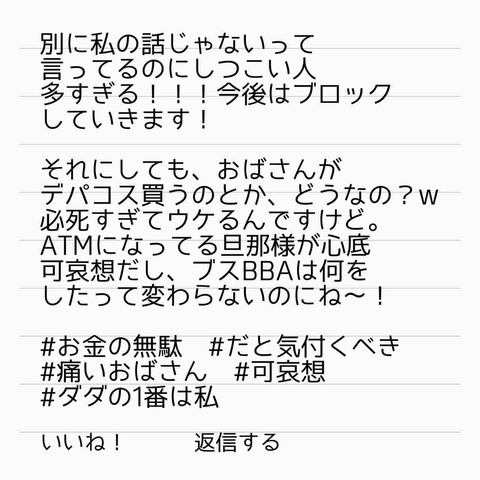 別に私の話じゃないって
言ってるのにしつこい人
多すぎる！！！今後はブロック
していきます！
それにしても、おばさんが
デパコス買うのとか、どうなの？w
必死すぎてウケるんですけど。
ATMになってる旦那様が心底
可哀想だし、ブスBBAは何を
したって変わらないのにね〜！
#お金の無駄　#だと気付くべき
#痛いおばさん　#可哀想
#ダダの1番は私
いいね！　返信する